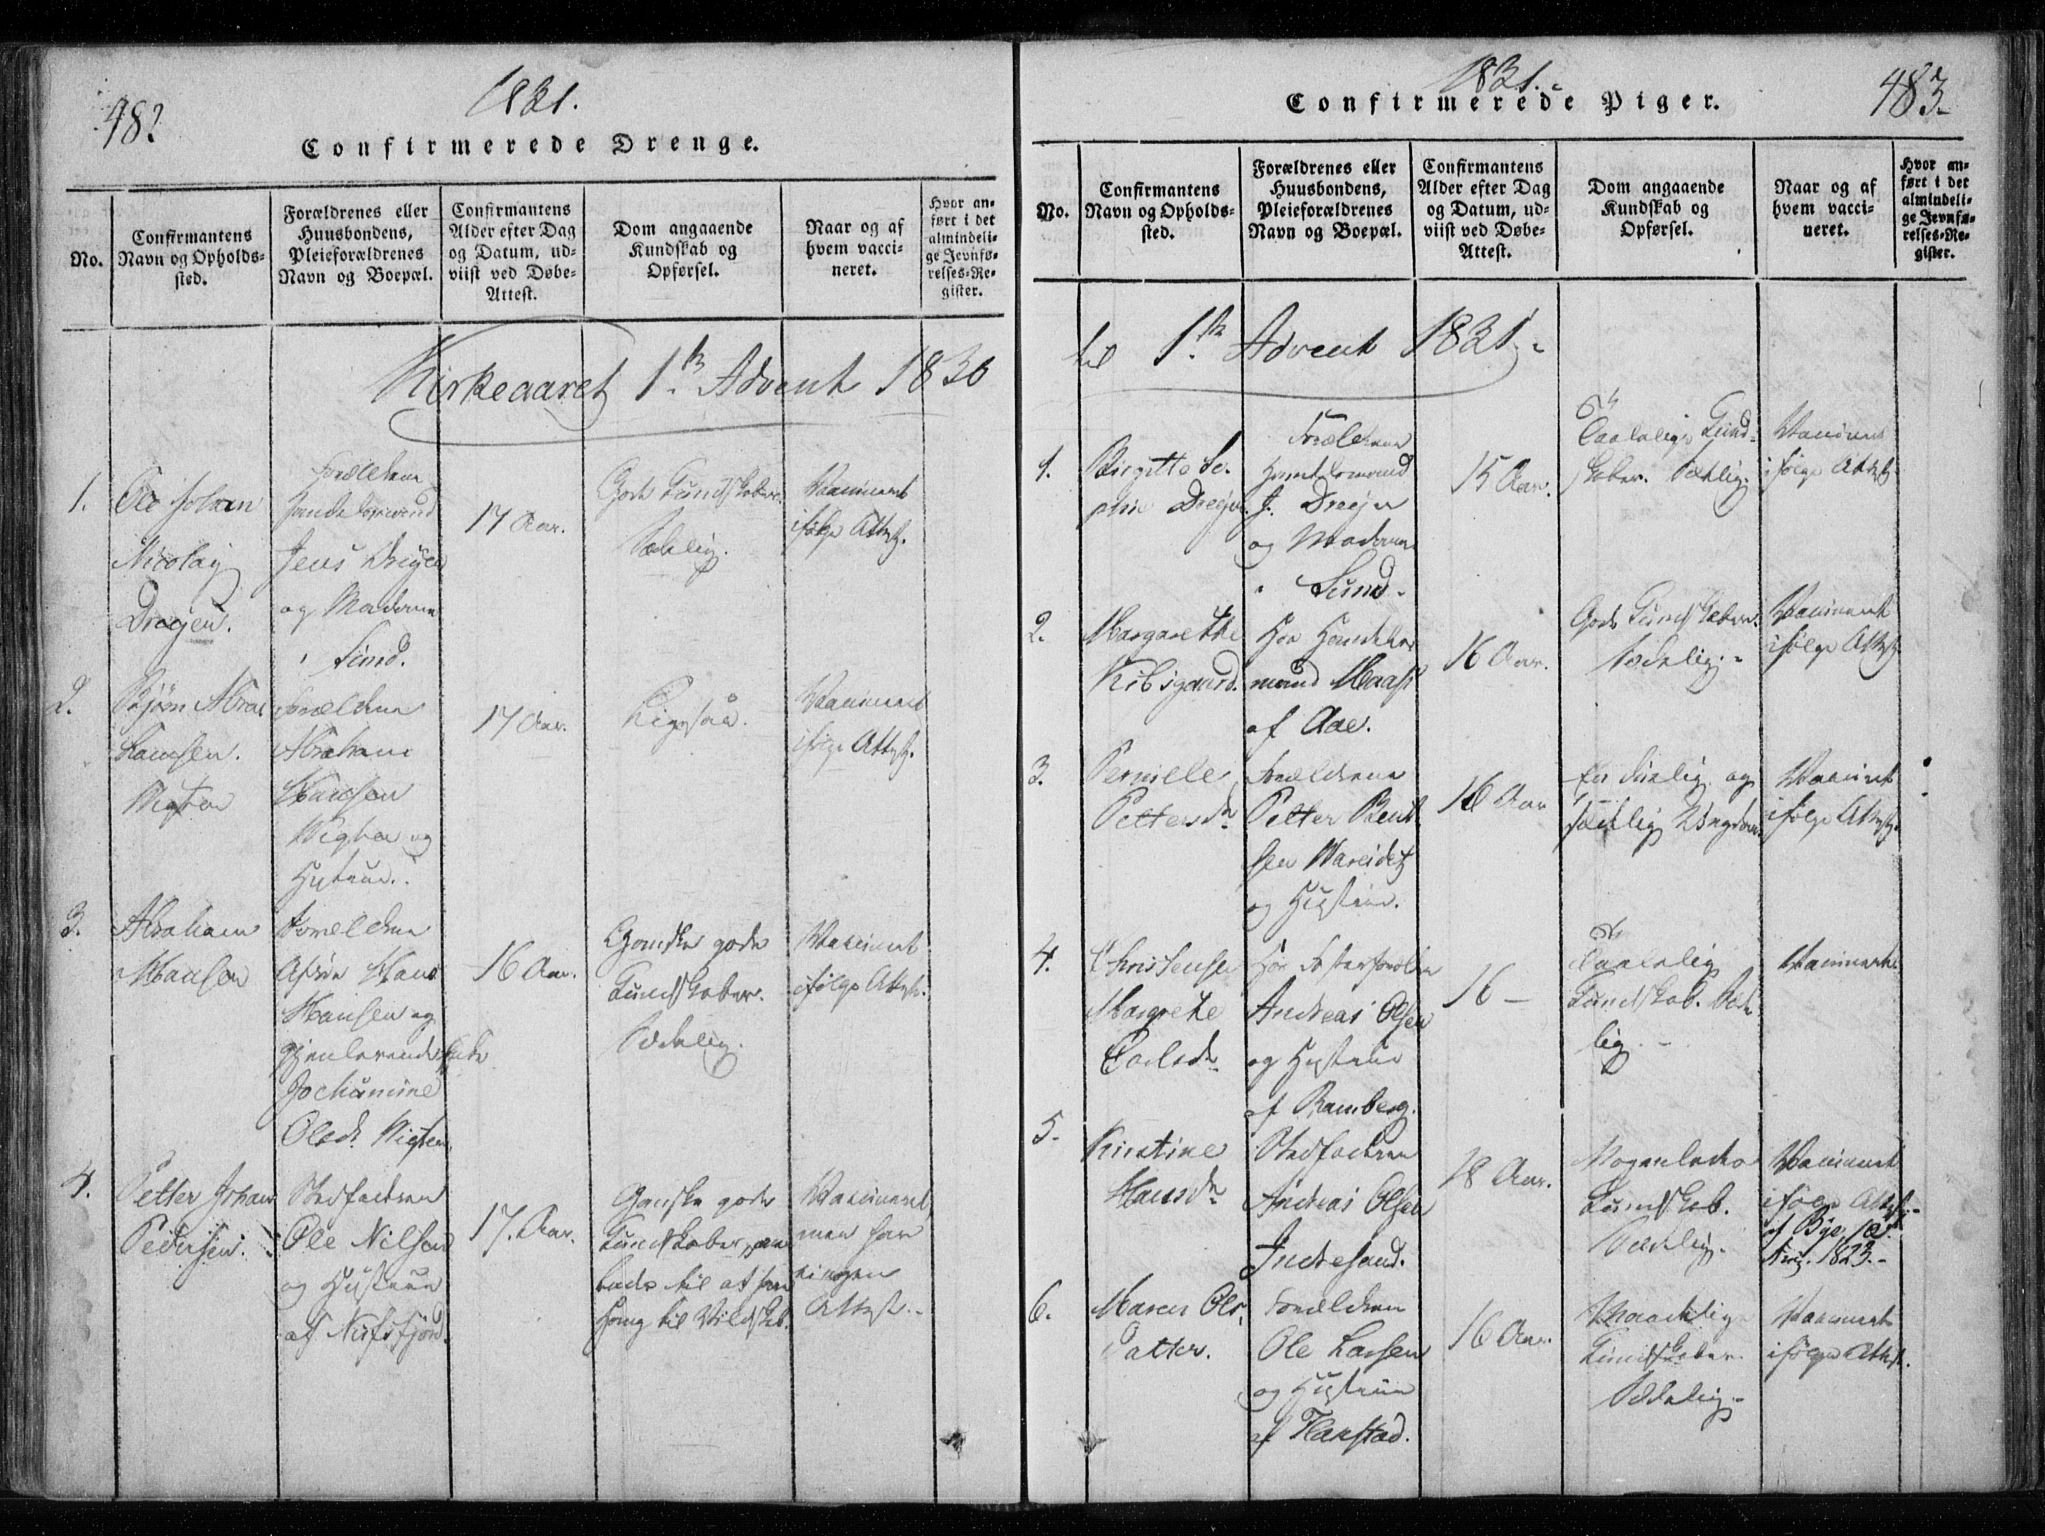 482
1831.
Confirmerede Drenge.
No.
Confirmantens
Navn og Opholds-
sted.
Forældrenes eller
Huusbondens,
Pleieforældrenes
Navn og Boepæl.
Confirmantens
Alder efter Dag
og Datum, ud-
viist ved Døbe-
Attest.
Dom angaaende
Kundskab og
Opførsel.
Naar og af
hvem vacci-
neret.
Hvor an-
ført i det
almindeli-
ge Jevnfø-
relses-Re-
gister.
Kirkeaaret 1ste Advent 1830
1.
Johan
Nicolay
Dreyer.
Forældrene
Handelsmand
Jens Dreyer
og Madame
i Sund.
17 Aar.
Gode Kundskaber.
Sædelig.
Vaccineret
ifølge Attest.
2.
Bjørn Abra-
hamsen.
Forældrene
Abraham
Hansen
og
Hustrue.
17 Aar.
Ligesaa.
Vaccineret
ifølge Attest.
3.
Abraham
Hansen
Forældrene
Hans
Hansen og
gjenlevende Enke
Jochumine
Olsdr.
16 Aar.
Ganske gode
Kundskaber.
Sædelig.
Vaccineret
ifølge Attest.
4.
Petter Johan
Pedersen.
Stedfaderen
Ole Nilsen
og Hustrue
af Nusfjord.
17. Aar.
Ganske gode
Kundskaber,
til at
til Vildskab.
Vaccineret,
men har
ningen
Attest.
1831.
Confirmerede Piger.
483
No.
Confirmantens
Navn og Opholds-
sted.
Forældrenes eller
Huusbondens,
Pleieforældrenes
Navn og Boepæl.
Confirmantens
Alder efter Dag
og Datum, ud-
viist ved Døbe-
Attest.
Dom angaaende
Kundskab og
Opførsel.
Naar og af
hvem vacci-
neret.
Hvor an-
ført i det
almindeli-
ge Jevnfø-
relses-Re-
gister.
til 1ste Advent 1831.
1.
Birgitte So-
phie Dreyer.
Forældrene
Handelsmand
J. Dreyer
og Madame
i Sund.
15 Aar.
Taalelige Kund-
skaber. Sædelig.
Vaccineret
ifølge Attest.
2.
Margarethe
Kibsgaard.
Hos Handels-
mand
af Aae.
16 Aar.
Gode Kundskaber.
Sædelig.
Vaccineret
ifølge Attest.
3.
Pernille
Pettersdr.
Forældrene
Petter Bent-
sen Wareidet
og Hustrue.
16 Aar
En og
sædelig Ungdom.
Vaccineret
ifølge Attest.
4.
Margrethe
Carlsdr.
Hos Fosterforældre
Andreas Olsen
og Hustrue
af Ramberg.
16 –
Taalelig
Kundskab. Sæde-
lig.
Vaccineret
5.
Kirstine
Hansdr.
Stedfaderen
Andreas Olsen
Indresand.
18 Aar.
Nogenledes
Kundskab.
Sædelig.
Vaccineret
ifølge Attest
af Bye,
Aug. 1823.
6.
Maren Ols-
datter.
Forældrene
Ole Larsen
og Hustrue
af Flakstad.
16 Aar.
Maadelige
Kundskaber.
Sædelig.
Vaccineret
ifølge Attest.